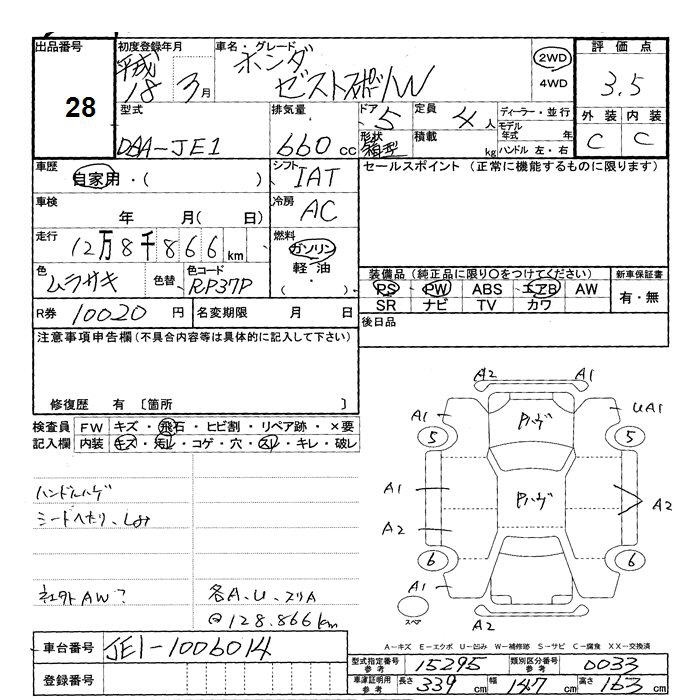 出品番号
28
初度登録年月
平成 18年 3月
車名・グレード
ホンダ
ゼストスポーツW
2WD
4WD
評価点
3.5
外装 内装
C C
型式
DBA-JE1
排気量
660 cc
ドア 5
形状 箱型
定員 4人
積載 kg
ディーラー・並行
モデル年式 年
ハンドル 左・右
車歴
自家用・( )
シフト
IAT
セールスポイント (正常に機能するものに限ります)
車検
年 月( 日)
冷房
AC
走行
12万8千866km
燃料
ガソリン
軽油
・
( )
色
ムラサキ
色替
色コード
RP37P
装備品 (純正品に限り○をつけてください)
PS PW ABS エアB AW
SR ナビ TV カワ
新車保証書
有・無
R券 10020円
名変期限 月 日
後日品
注意事項申告欄 (不具合内容等は具体的に記入して下さい)
修復歴 有 〔箇所 〕
検査員記入欄
FW キズ・飛石・ヒビ割・リペア跡・×要
内装 キズ・汚レ・コゲ・穴・スレ・キレ・破レ
ハンドルハゲ
シートへたり、しみ
社外AW?
各A、U、スリA
@128.866km
A2 A1
A1 UA1
5 5
Pハゲ
A1
Pハゲ
A2
A2
6 6
A1
スペア
A2
A－キズ E－エクボ U－凹み W－補修跡 S－サビ C－腐食 XX－交換済
車台番号 JE1-1006014
登録番号
型式指定番号 参考 15295
類別区分番号 参考 0033
車庫証明用 参考 長さ 339cm 幅 147cm 高さ 163cm